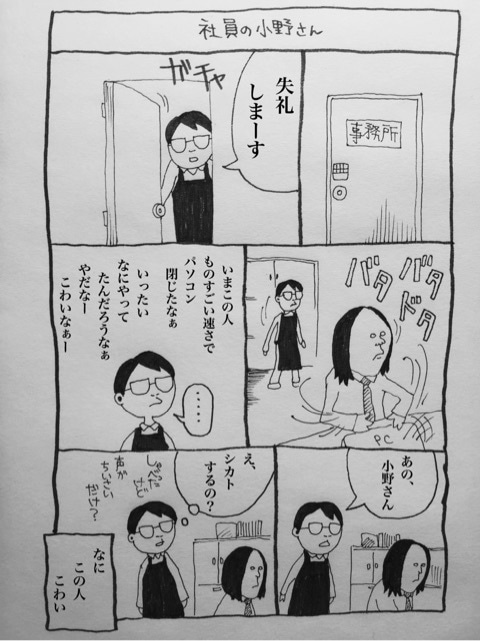 社員の小野さん
事務所
ガチャ
失礼
しまーす
バタ
バタ
ドタ
PC
いまこの人
ものすごい速さで
パソコン
閉じたなぁ
いったい
なにやって
たんだろうなぁ
やだなー
こわいなぁー
・・・・・
あの、
小野さん
え、
シカト
するの?
しゃべった
けど
声が
ちいさい
だけ?
なに
この人
こわい